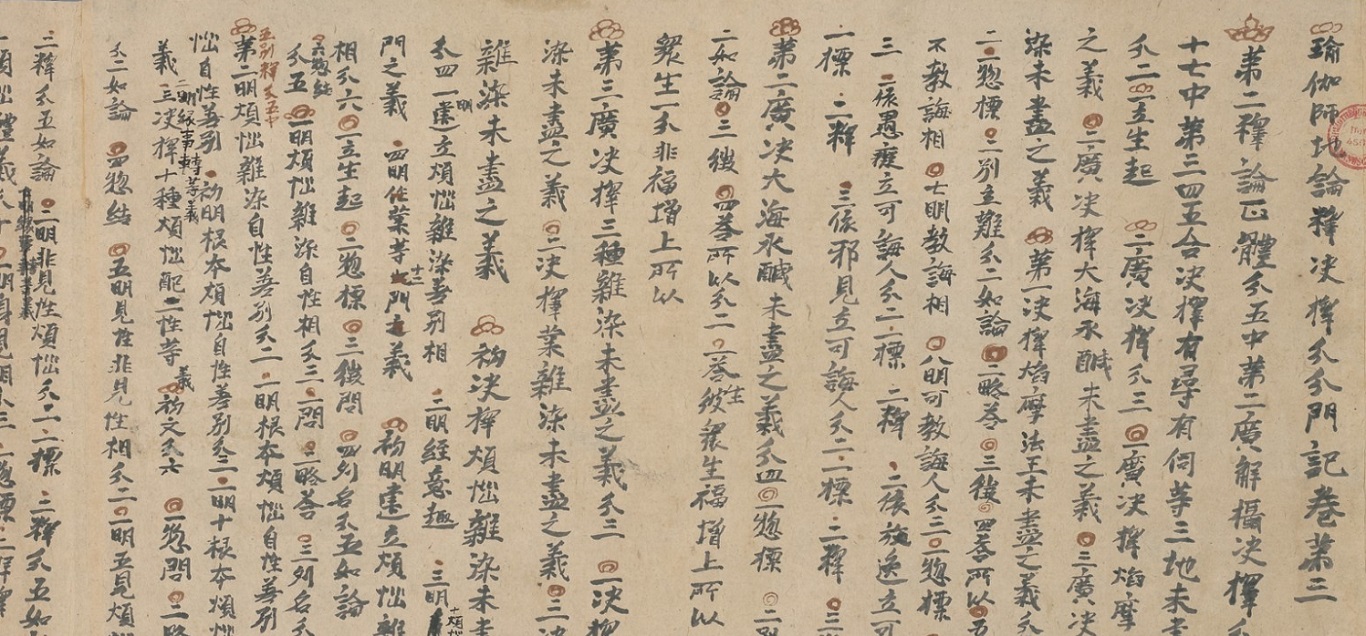 瑜伽師地論釋决擇分分門記卷第三
第二釋論正體分五中第二廣解攝决擇分
十七中第三四五合决擇有尋有伺等三地未
分二 一立生起 二廣决擇分三 一廣决擇焰摩
之義 二廣决擇大海水醎未盡之義 三廣决
染未盡之義 第一决擇焰摩法王未盡之義分
二 一惣標 二別立難分二如論 二略答 三徵 四答所以 五
不教誨相 七明教誨相 八明可教誨人分三 一惣標
三 一依愚癡立可誨人分二 一標 二釋 二依放逸立可
一標 二釋 三依邪見立可誨人分二 一標 二釋 三
第二廣决大海水醎未盡之義分四 一惣標 二別
二如論 三徵 四答所以分二 一答彼衆生福增上所以
衆生一分非福增上所以
第三廣决擇三種雜染未盡之義分三 一决擇
染未盡之義 二决擇業雜染未盡之義 三决
雜染未盡之義 初决擇煩惱雜染未
分四 一明建立煩惱雜染差別相 二明經意趣 三明十煩惱
門之義 四明作業等十二門之義 初明建立煩惱雜
相分六 一立生起 二惣標 三徵問 四列名分五如論
六惣結
分五 一明煩惱雜染自性相分三 一問 二略答 三列名分
五別釋分五中
第二明煩惱雜染自性差別分二 一明根本煩惱自性差別
惱自性差別 初明根本煩惱自性差別分三 一明十根本煩惱
二明緣事轉等義
義 三决擇十種煩惱配二性等義 初文分六 一惣問 二略
分二如論 四惣結 五明見性非見性相分二 一明五見煩惱
三釋分五如論 二明非見性煩惱分二 一標 二釋分五如